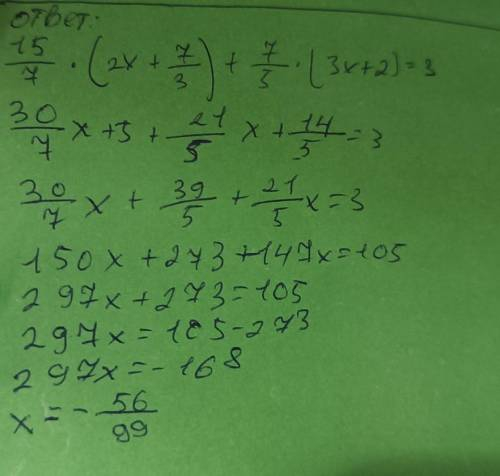 ответ:
15/7 · (2x + 7/3) + 7/5 · (3x+2) = 3
30/7 x + 5 + 21/5 x + 14/5 = 3
30/7 x + 39/5 + 21/5 x = 3
150x + 273 + 147x = 105
297x + 273 = 105
297x = 105 - 273
297x = - 168
x = - 56/99